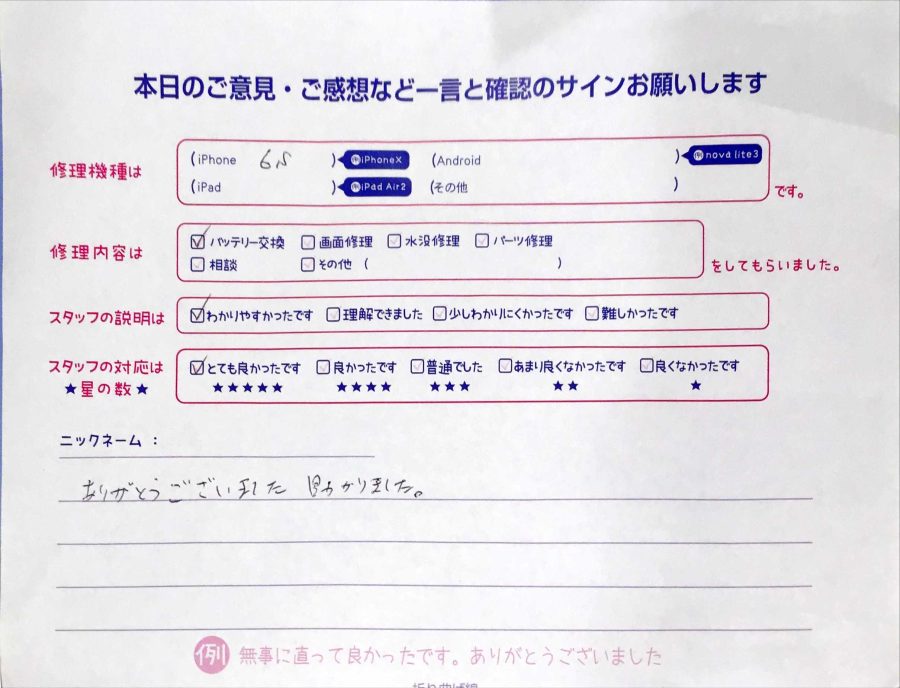 本日のご意見・ご感想など一言と確認のサインお願いします
修理機種は
(iPhone 6s ) 例iPhoneX (Android ) 例nova lite3
(iPad ) 例iPad Air2 (その他 ) です。
修理内容は
バッテリー交換 画面修理 水没修理 パーツ修理
相談 その他 ( ) をしてもらいました。
スタッフの説明は わかりやすかったです 理解できました 少しわかりにくかったです 難しかったです
スタッフの対応は とても良かったです 良かったです 普通でした あまり良くなかったです 良くなかったです
★星の数★ ★★★★★ ★★★★ ★★★ ★★ ★
ニックネーム：
ありがとうございました 助かりました。
例 無事に直って良かったです。ありがとうございました